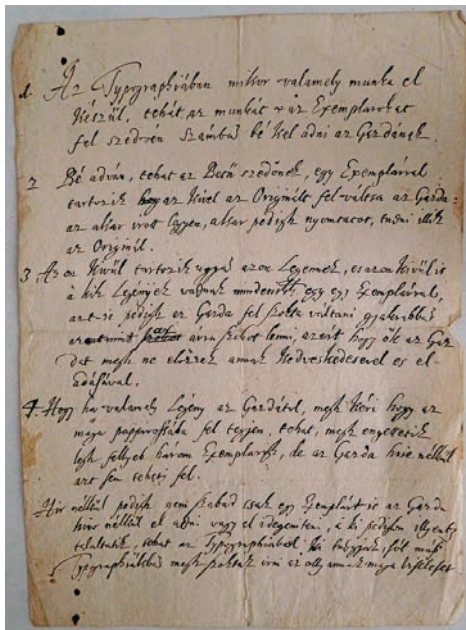 1. Az Typographiában mikor valamely munka el
készül, tehát az munkát v az Exemplarokat
fel szedvén Számbul bé kel adni az Gazdának.
2 Bé adván, tehat az Betű szedőnek, egy Exemplárral
tartozik hogy az kivel az Originált fel váltsa az Gazda
az akar irott legyen, akar pedigh nyomtatot, tudni illik
az Originál.
3 Az on kivűl tartozik ugyan azon Legennek, es azon kivűl is
a kik Legények vadnak mindeniknek egy egy Exemplárral,
azt is pedigh ez Gazda fel szokta váltani gyakrabban
árán szokot lenni, azért hogy ők az Gaz
dat megh ne előzzek annak kedveskedesevel es el-
adásával.
4. Hogy ha valamely Legény az Gazdátul, megh kéri hogy az
maga papirossába fel tegyen, tehat, megh engettetik
legh fellyeb három Exemplarigh, de az Gazda hire nélkűl
azt sem teheti fel.
Hir nélkűl pedigh nem szabad csak egy Exemplárt is az Gazda
hire nélkűl el adni vagy el idegeniteni, a ki pedigh illyenben
talaltatik, tehat az Typographiabol ki tudgyák, sőt más
Typographiákban megh szokták irni az olly annak maga viseleset